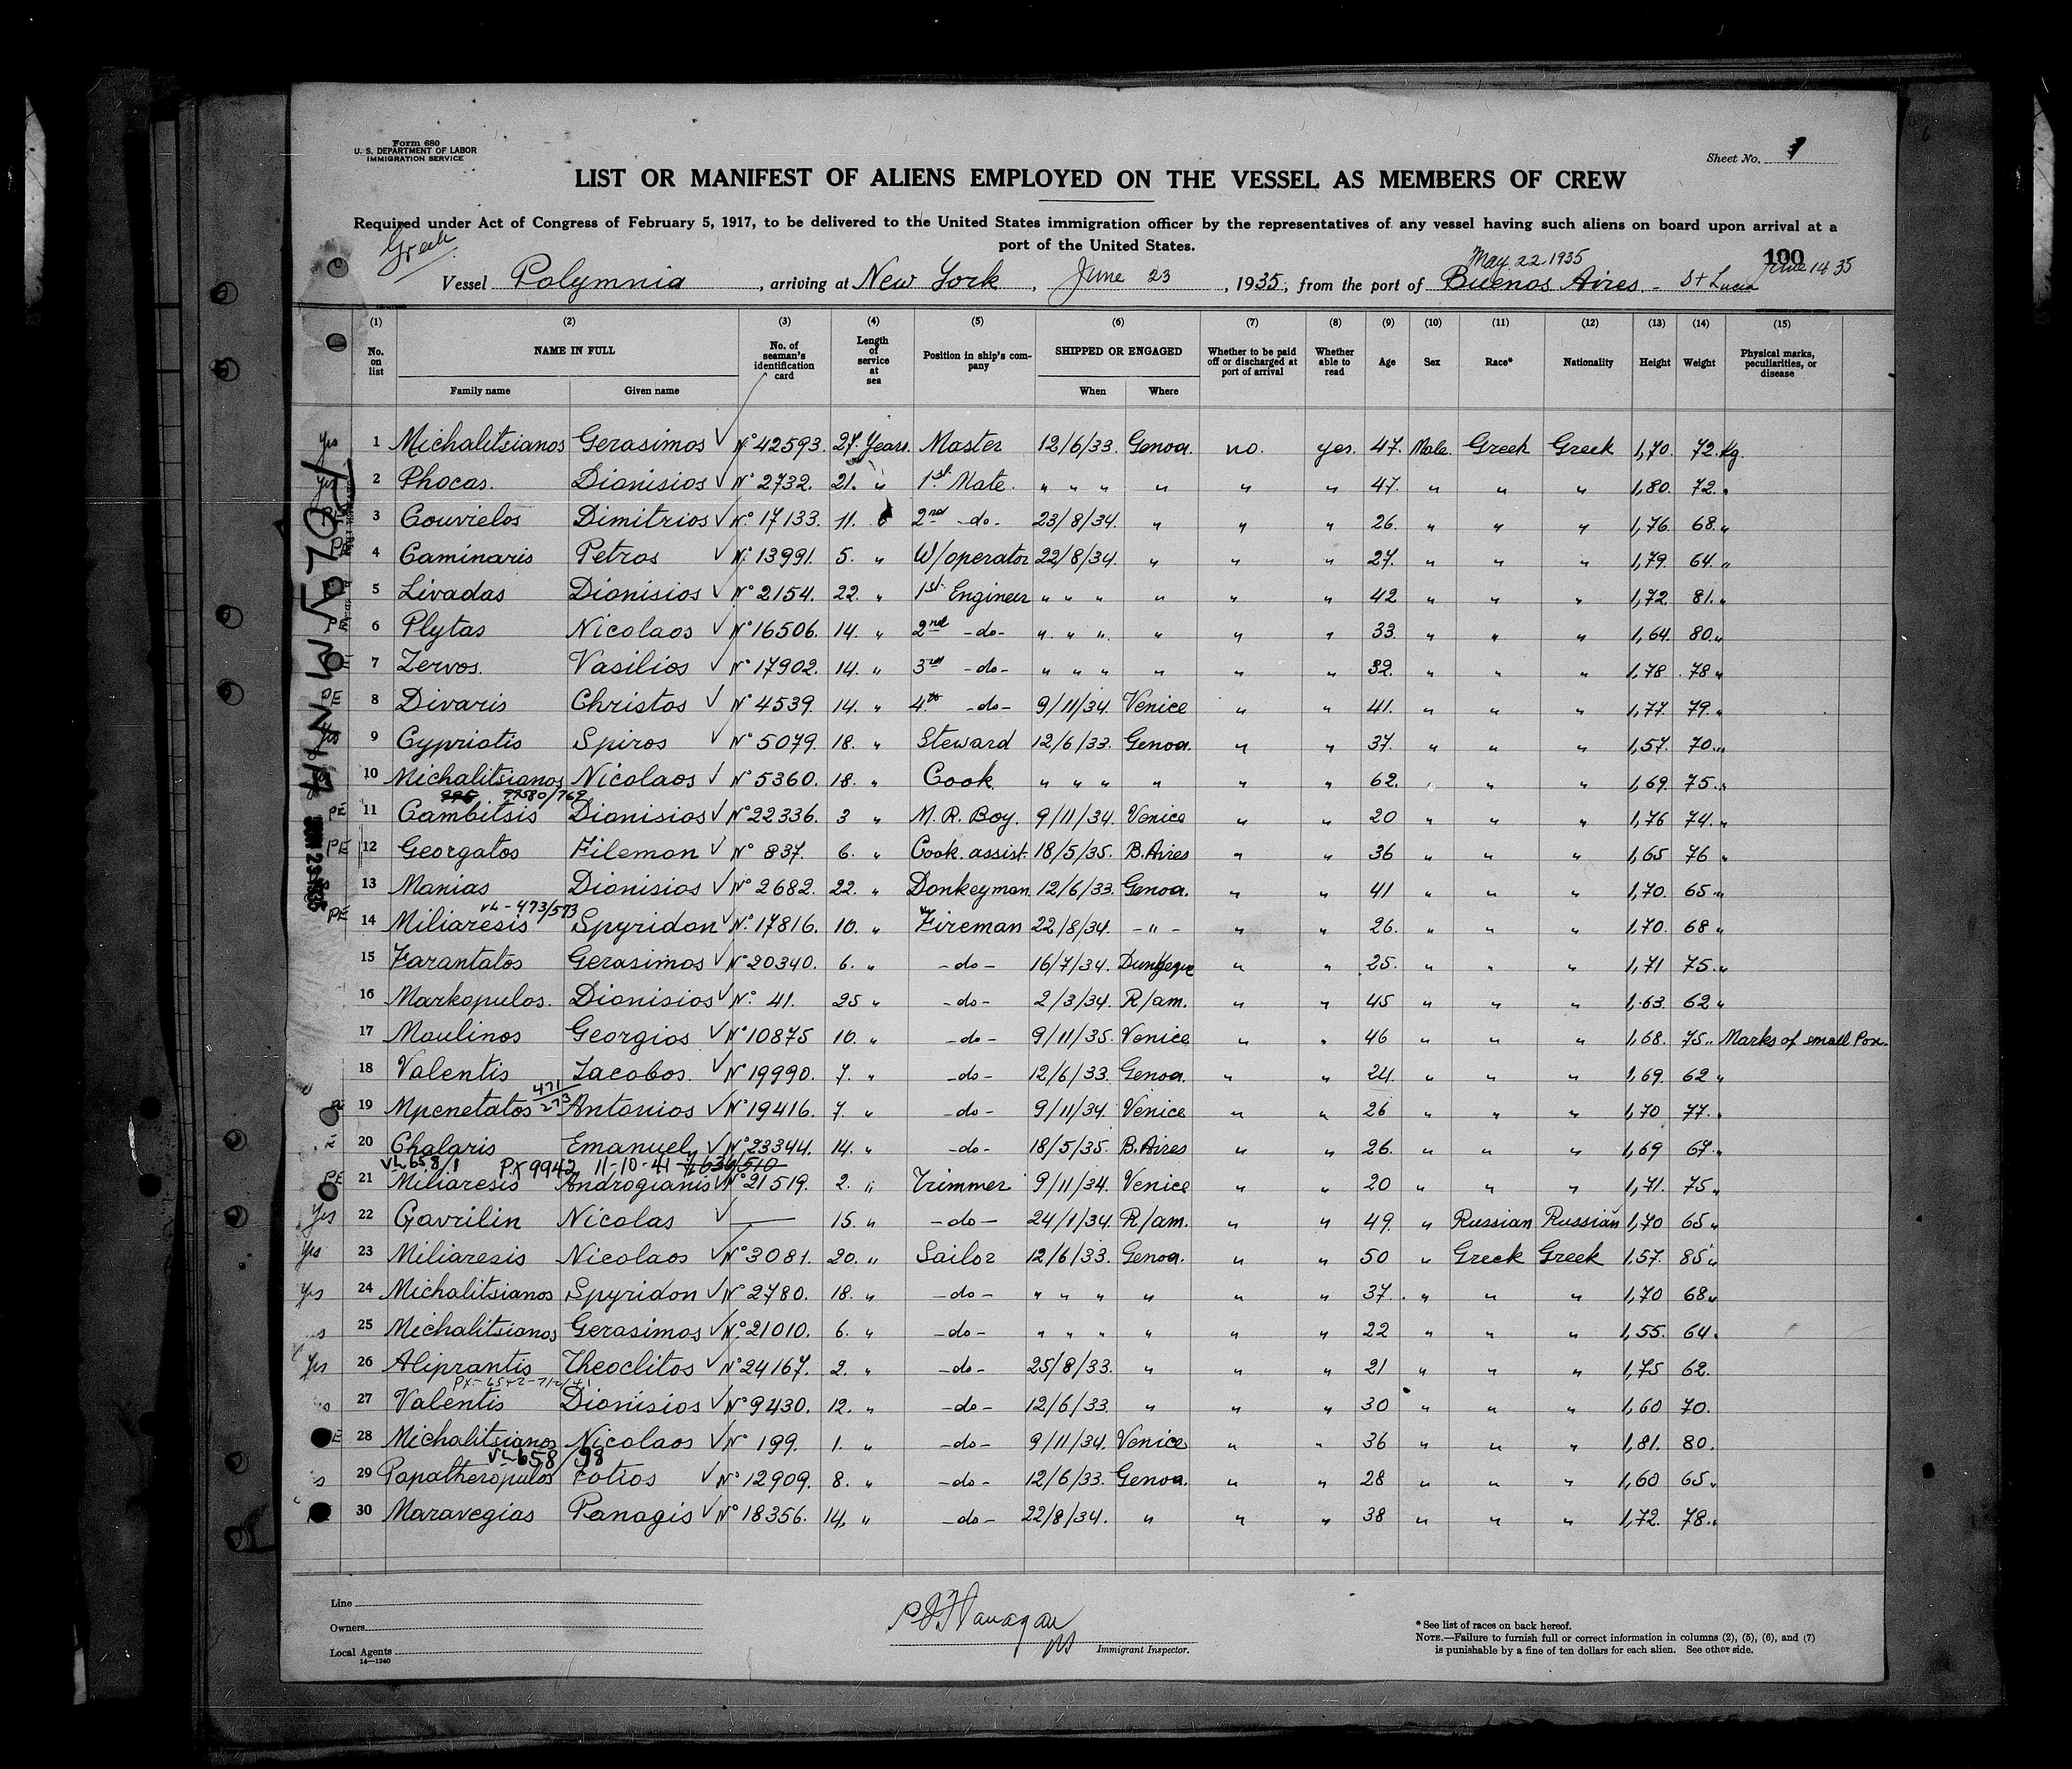 Form 680
U. S. DEPARTMENT OF LABOR
IMMIGRATION SERVICE
Sheet No. 1
LIST OR MANIFEST OF ALIENS EMPLOYED ON THE VESSEL AS MEMBERS OF CREW
Required under Act of Congress of February 5, 1917, to be delivered to the United States immigration officer by the representatives of any vessel having such aliens on board upon arrival at a
port of the United States.
Greek
May 22 1935
190
June 14 35
Vessel Polymnia, arriving at New York, June 23, 1935, from the port of Buenos Aires. - St Lucia
(1) (2) (3) (4) (5) (6) (7) (8) (9) (10) (11) (12) (13) (14) (15)
No. on list NAME IN FULL Family name Given name No. of seaman's identification card Length of service at sea Position in ship's company SHIPPED OR ENGAGED When Where Whether to be paid off or discharged at port of arrival Whether able to read Age Sex Race* Nationality Height Weight Physical marks, peculiarities, or disease
yes 1 Michalitsianos Gerasimos √ N° 42593. 27. Years. Master 12/6/33. Genoa. no. yes. 47. Male. Greek Greek 1,70. 72. Kg.
yes 2 Phocas. Dionisios √ N° 2732. 21. " 1st Mate. " " " " " " 47. " " " 1,80. 72. "
3 Couvielos Dimitrios √ N° 17133. 11. 2nd -do- 23/8/34. " " " 26. " " " 1,76. 68. "
4 Caminaris Petros √ N° 13991. 5. " W/operator 22/8/34. " " " 27. " " " 1,79. 64. "
5 Livadas Dionisios √ N° 2154. 22. " 1st Engineer " " " " " " 42 " " " 1,72. 81. "
PE 6 Plytas Nicolaos √ N° 16506. 14. " 2nd -do- " " " " " " 33. " " " 1,64. 80. "
7 Zervos. Vasilios √ N° 17902. 14. " 3rd -do- " " " " " " 32. " " " 1,78. 78 "
PE 8 Divaris Christos √ N° 4539. 14. " 4th -do- 9/11/34. Venice " " 41. " " " 1,77. 79. "
9 Cypriotis Spiros √ N° 5079. 18. " Steward 12/6/33. Genoa. " " 37. " " " 1,57. 70. "
10 Michalitsianos Nicolaos √ N° 5360. 18. " Cook " " " " " " 62. " " 1,69. 75. "
99580/769
PE 11 Cambitsis Dionisios √ N° 22336. 3 " M. R. Boy. 9/11/34. Venice " " 20 " " " 1,76 74. "
PE 12 Georgatos Filemon √ N° 837. 6. " Cook. assist. 18/5/35. B. Aires " " 36 " " " 1,65 76 "
13 Manias Dionisios √ N° 2682. 22. " Donkeyman. 12/6/33. Genoa. " " 41 " " " 1,70. 65 "
VL - 473/573
PE 14 Miliaresis Spyridon √ N° 17816. 10. " Fireman 22/8/34. - " - " " 26. " " " 1,70. 68 "
15 Farantatos Gerasimos √ N° 20340. 6. " -do- 16/7/34. " " 25. " " " 1,71 75. "
16 Markopulos. Dionisios √ N° 41. 25 " -do- 2/3/34. R/am. " " 45 " " " 1,63. 62 "
17 Moulinos Georgios √ N° 10875 10. " -do- 9/11/35. Venice " " 46 " " " 1,68. 75. " Marks of small Pox.
18 Valentis Iacobos. √ N° 19990. 7. " -do- 12/6/33. Genoa. " " 24. " " " 1,69. 62 "
471/273
19 Mpenetatos Antonios √ N° 19416. 7. " -do- 9/11/34. Venice " " 26 " " " 1,70 77. "
20 Chalaris Emanuel √ N° 23344. 14. " -do- 18/5/35. B. Aires " " 26. " " " 1,69 67. "
VL 658/1 PX 9942 11-10-41
PE 21 Miliaresis Androgianis √ N° 21519. 2. " Trimmer 9/11/34. Venice " " 20 " " " 1,71. 75 "
Yes 22 Gavrilin Nicolas √ — 15. " -do- 24/1/34. R/am. " " 49. " Russian Russian 1,70 65 "
Yes 23 Miliaresis Nicolaos √ N° 3081. 20. " Sailor 12/6/33. Genoa. " " 50 " Greek Greek 1,57. 85 "
Yes 24 Michalitsianos Spyridon √ N° 2780. 18. " -do- " " " " " " 37. " " " 1,70 68 "
25 Michalitsianos Gerasimos √ N° 21010. 6. " -do- " " " " " " 22 " " " 1,55. 64.
Yes 26 Aliprantis Theoclitos √ N° 24167. 2. " -do- 25/8/33. " " " 21 " " " 1,75 62.
27 Valentis Dionisios √ N° 9430. 12. " -do- 12/6/33. " " " 30 " " " 1,60 70.
28 Michalitsianos Nicolaos √ N° 199. 1. " -do- 9/11/34. Venice " " 36 " " " 1,81. 80.
VL 658/98
29 Papatheropulos Fotios √ N° 12909. 8. " -do- 12/6/33. Genoa. " " 28 " " " 1,60 65 "
30 Maravegias Panagis √ N° 18356. 14. " -do- 22/8/34. " " " 38 " " " 1,72. 78. "
JUN 23 1935
Line
Owners
Local Agents
14—1240
Immigrant Inspector.
* See list of races on back hereof.
NOTE.—Failure to furnish full or correct information in columns (2), (5), (6), and (7)
is punishable by a fine of ten dollars for each alien. See other side.